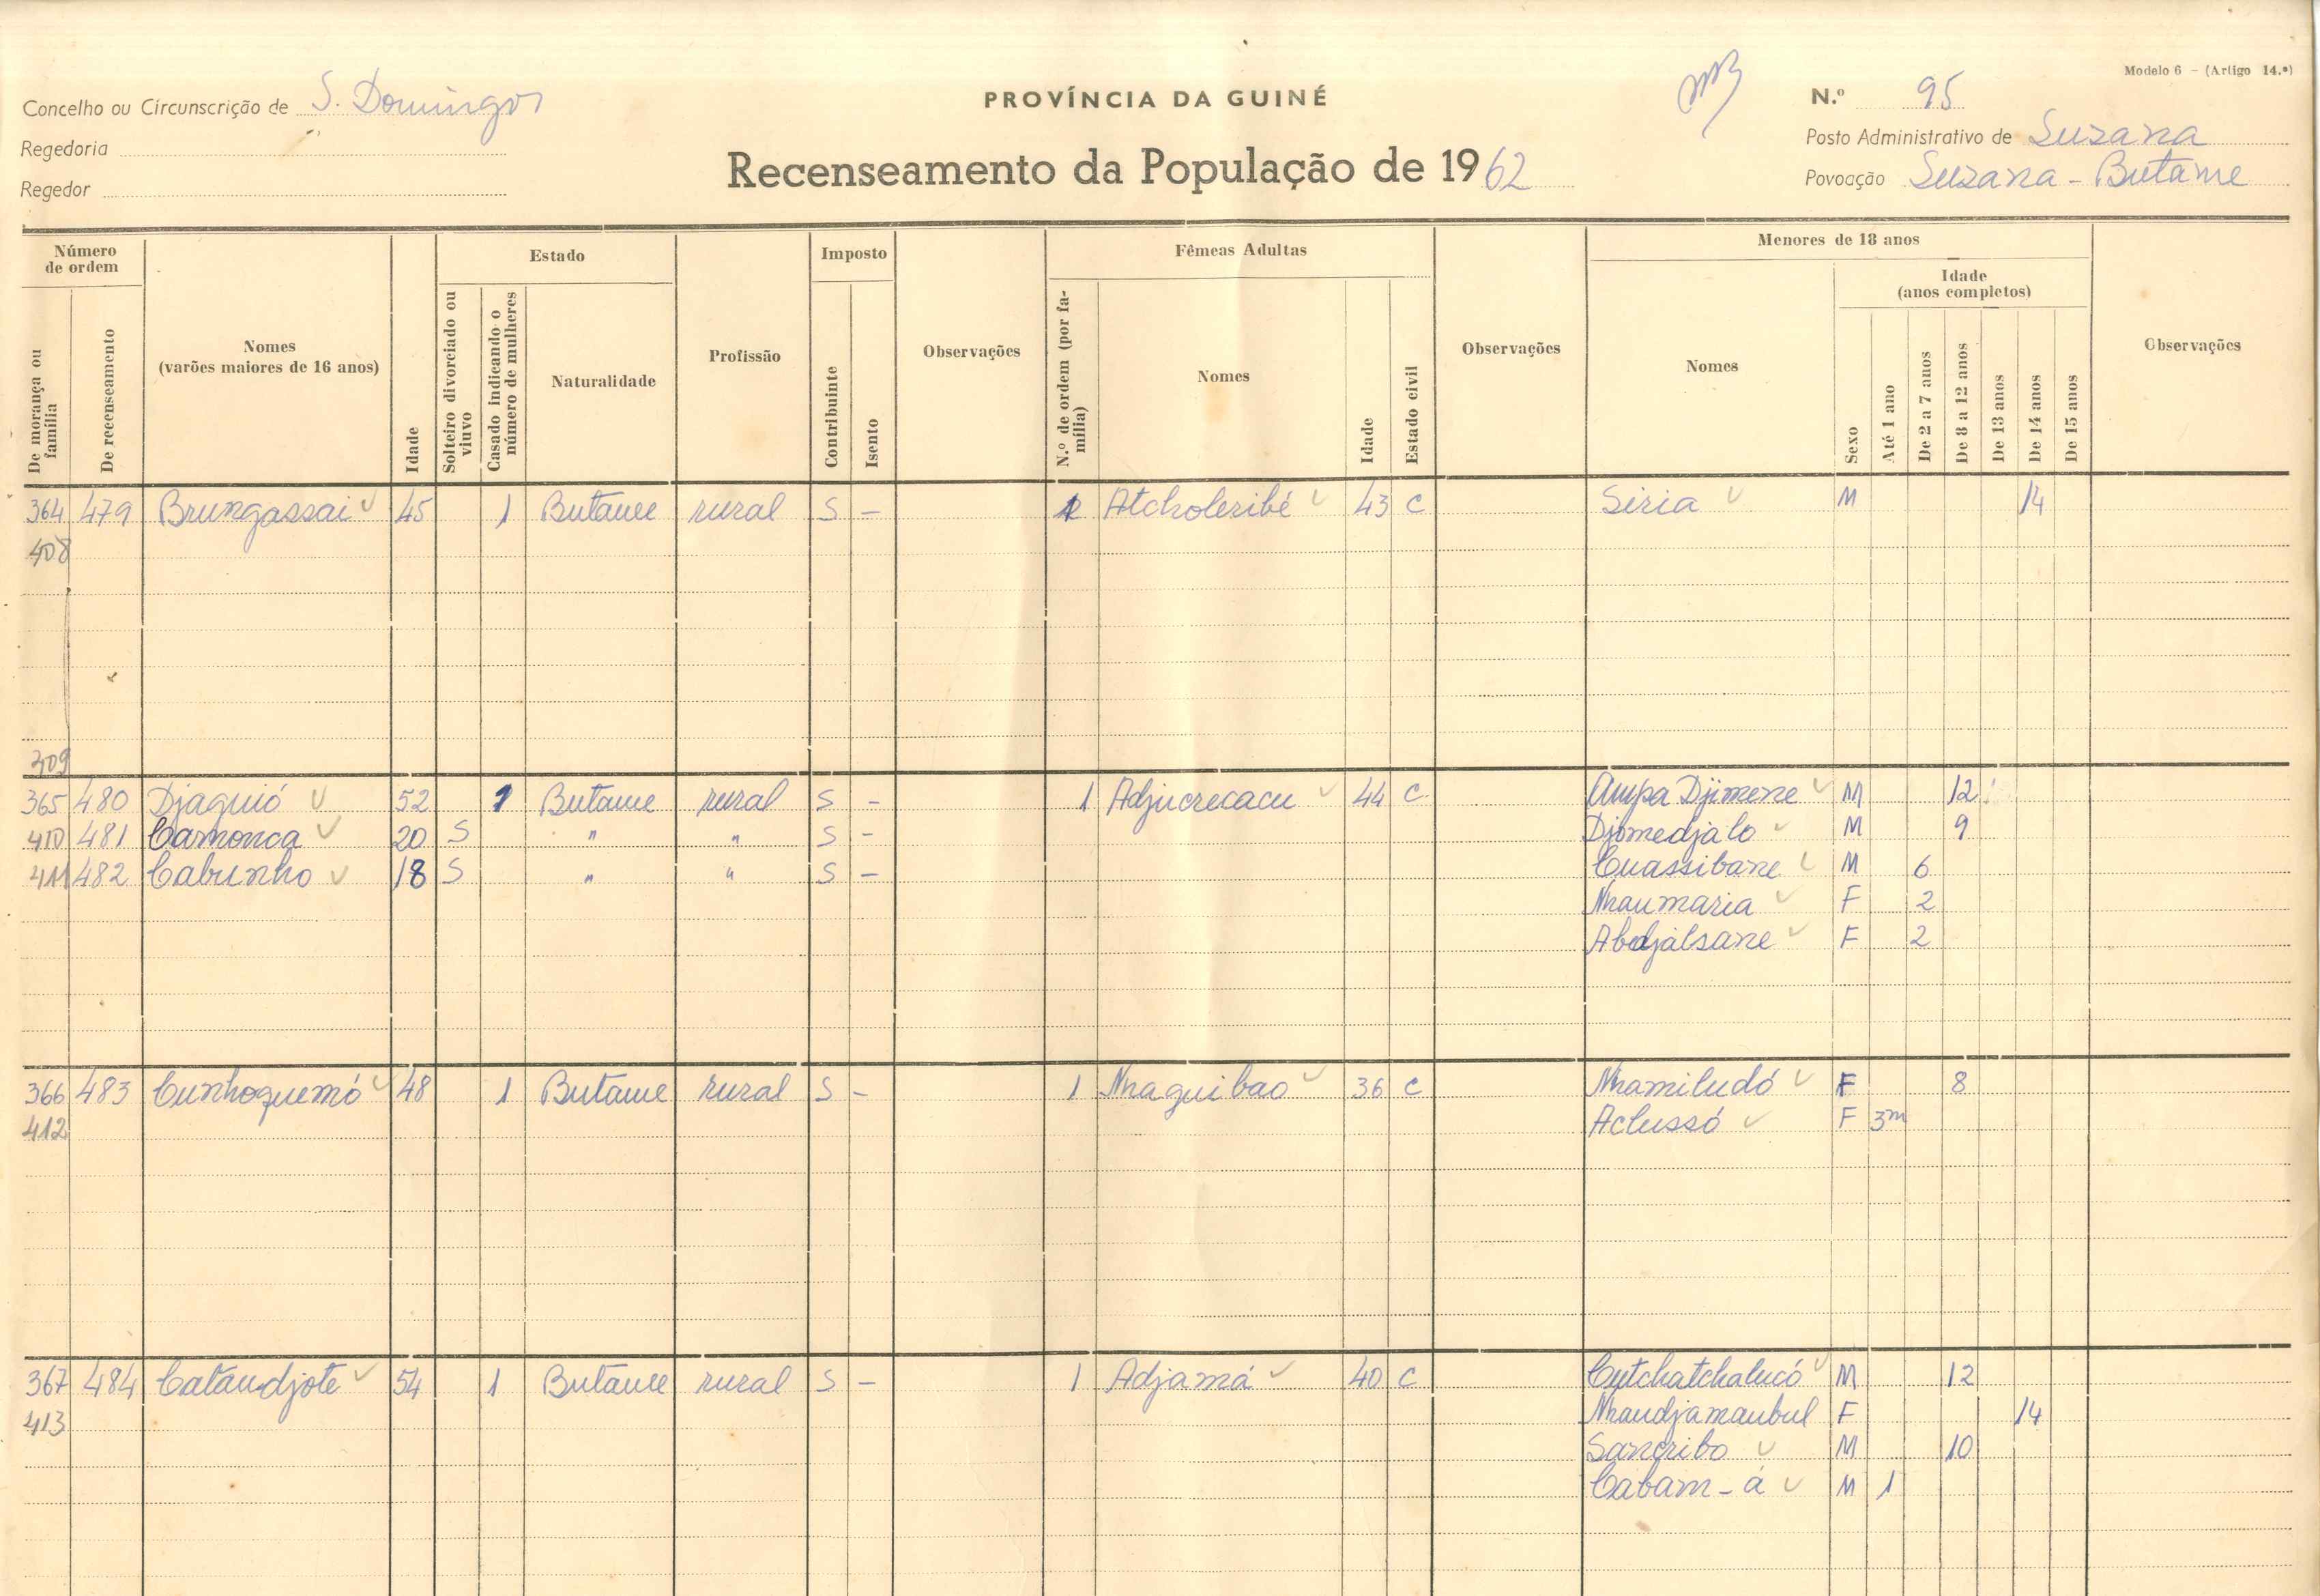 Modelo 6 – (Artigo 14.º)
Concelho ou Circunscrição de S. Domingos
PROVÍNCIA DA GUINÉ
N.º 95
Regedoria
Posto Administrativo de Suzana
Regedor
Recenseamento da População de 1962
Povoação Suzana - Butame
Número de ordem
De morança ou família
De recenseamento
Nomes
(varões maiores de 16 anos)
Idade
Estado
Solteiro divorciado ou viuvo
Casado indicando o número de mulheres
Naturalidade
Profissão
Imposto
Contribuinte
Isento
Observações
Fêmeas Adultas
N.º de ordem (por família)
Nomes
Idade
Estado civil
Observações
Menores de 18 anos
Nomes
Sexo
Idade
(anos completos)
Até 1 ano
De 2 a 7 anos
De 8 a 12 anos
De 13 anos
De 14 anos
De 15 anos
Observações
364 479 Brungassai 45 1 Butame rural S - 1 Atcholeribé 43 C Siria M 14
408
309
365 480 Djaquió 52 1 Butame rural S - 1 Adjucrecacu 44 C Ampa Djimene M 12
410 481 Camonca 20 S " " S - Djomedjalo M 9
411 482 Cabunho 18 S " " S - Cuassibane M 6
Nhaumaria F 2
Abedjalsane F 2
366 483 Cunhoquemó 48 1 Butame rural S - 1 Nhaguibao 36 C Nhamiludó F 8
412 Aclussó F 3m
367 484 Cataudjote 54 1 Butame rural S - 1 Adjamá 40 C Cutchatchalucó M 12
413 Nhaudjamaubul F 14
Sancribo M 10
Cabam-á M 1